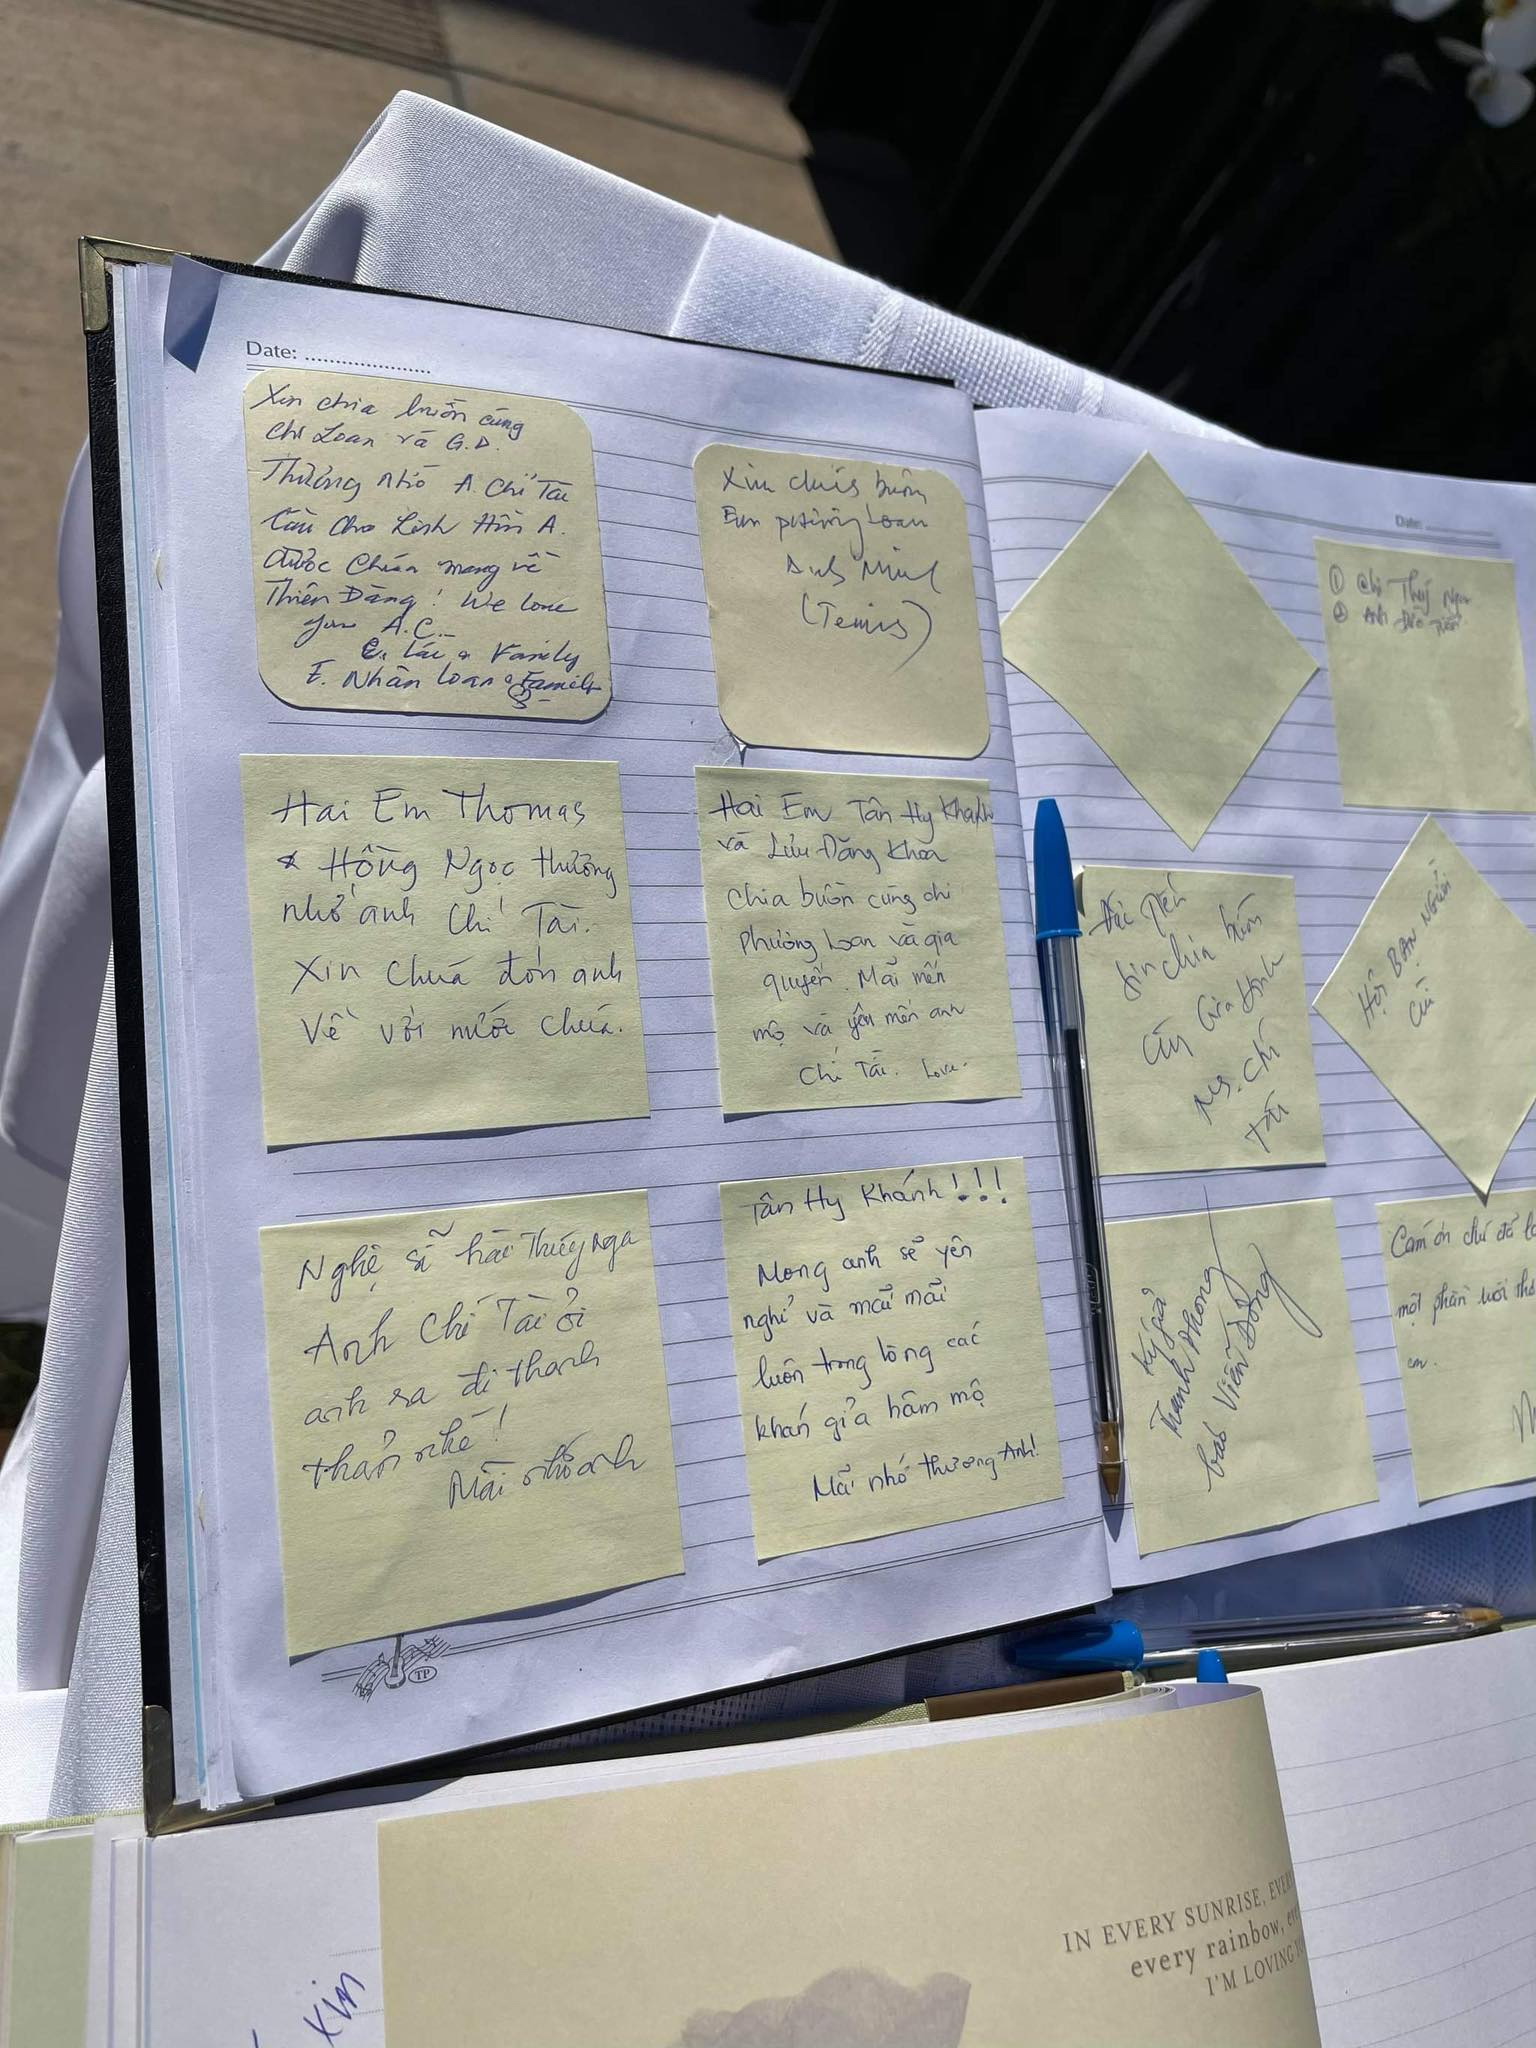 Date: ....................
Xin chia buồn cùng
chị Loan và G.Đ.
Thương nhớ A. Chí Tài
Cầu cho Linh Hồn A.
được Chúa mang về
Thiên Đàng! We love
you A.C.
& Family
E. Nhân Loan & Family
Xin chia buồn
Em phương Loan
Anh Minh
(Temis)
Hai Em Thomas
& Hồng Ngọc thương
nhớ anh Chí Tài.
Xin Chúa đón anh
Về với nước Chúa.
Hai Em Tân Hy Khánh
và Lưu Đăng Khoa
chia buồn cùng chị
Phương Loan và gia
quyến. Mãi mến
mộ và yêu mến anh
Chí Tài. Love.
Nghệ sĩ hài Thúy Nga
Anh Chí Tài ơi
anh ra đi thanh
thản nhé!
Mãi nhớ anh
Tân Hy Khánh!!!
Mong anh sẽ yên
nghỉ và mãi mãi
luôn trong lòng các
khán giả hâm mộ
Mãi nhớ thương Anh!
TP
Date:
① Chị Thúy Nga
② Anh
xin chia buồn
cùng Gia Đình
NS. Chí
Tài
HỘI BẠN NGƯỜI
CÙI
Ký giả
Thanh Phong
báo Viễn Đông
Cảm ơn chú đã
một phần
em.
Xin
IN EVERY SUNRISE,
every rainbow,
I'M LOVING